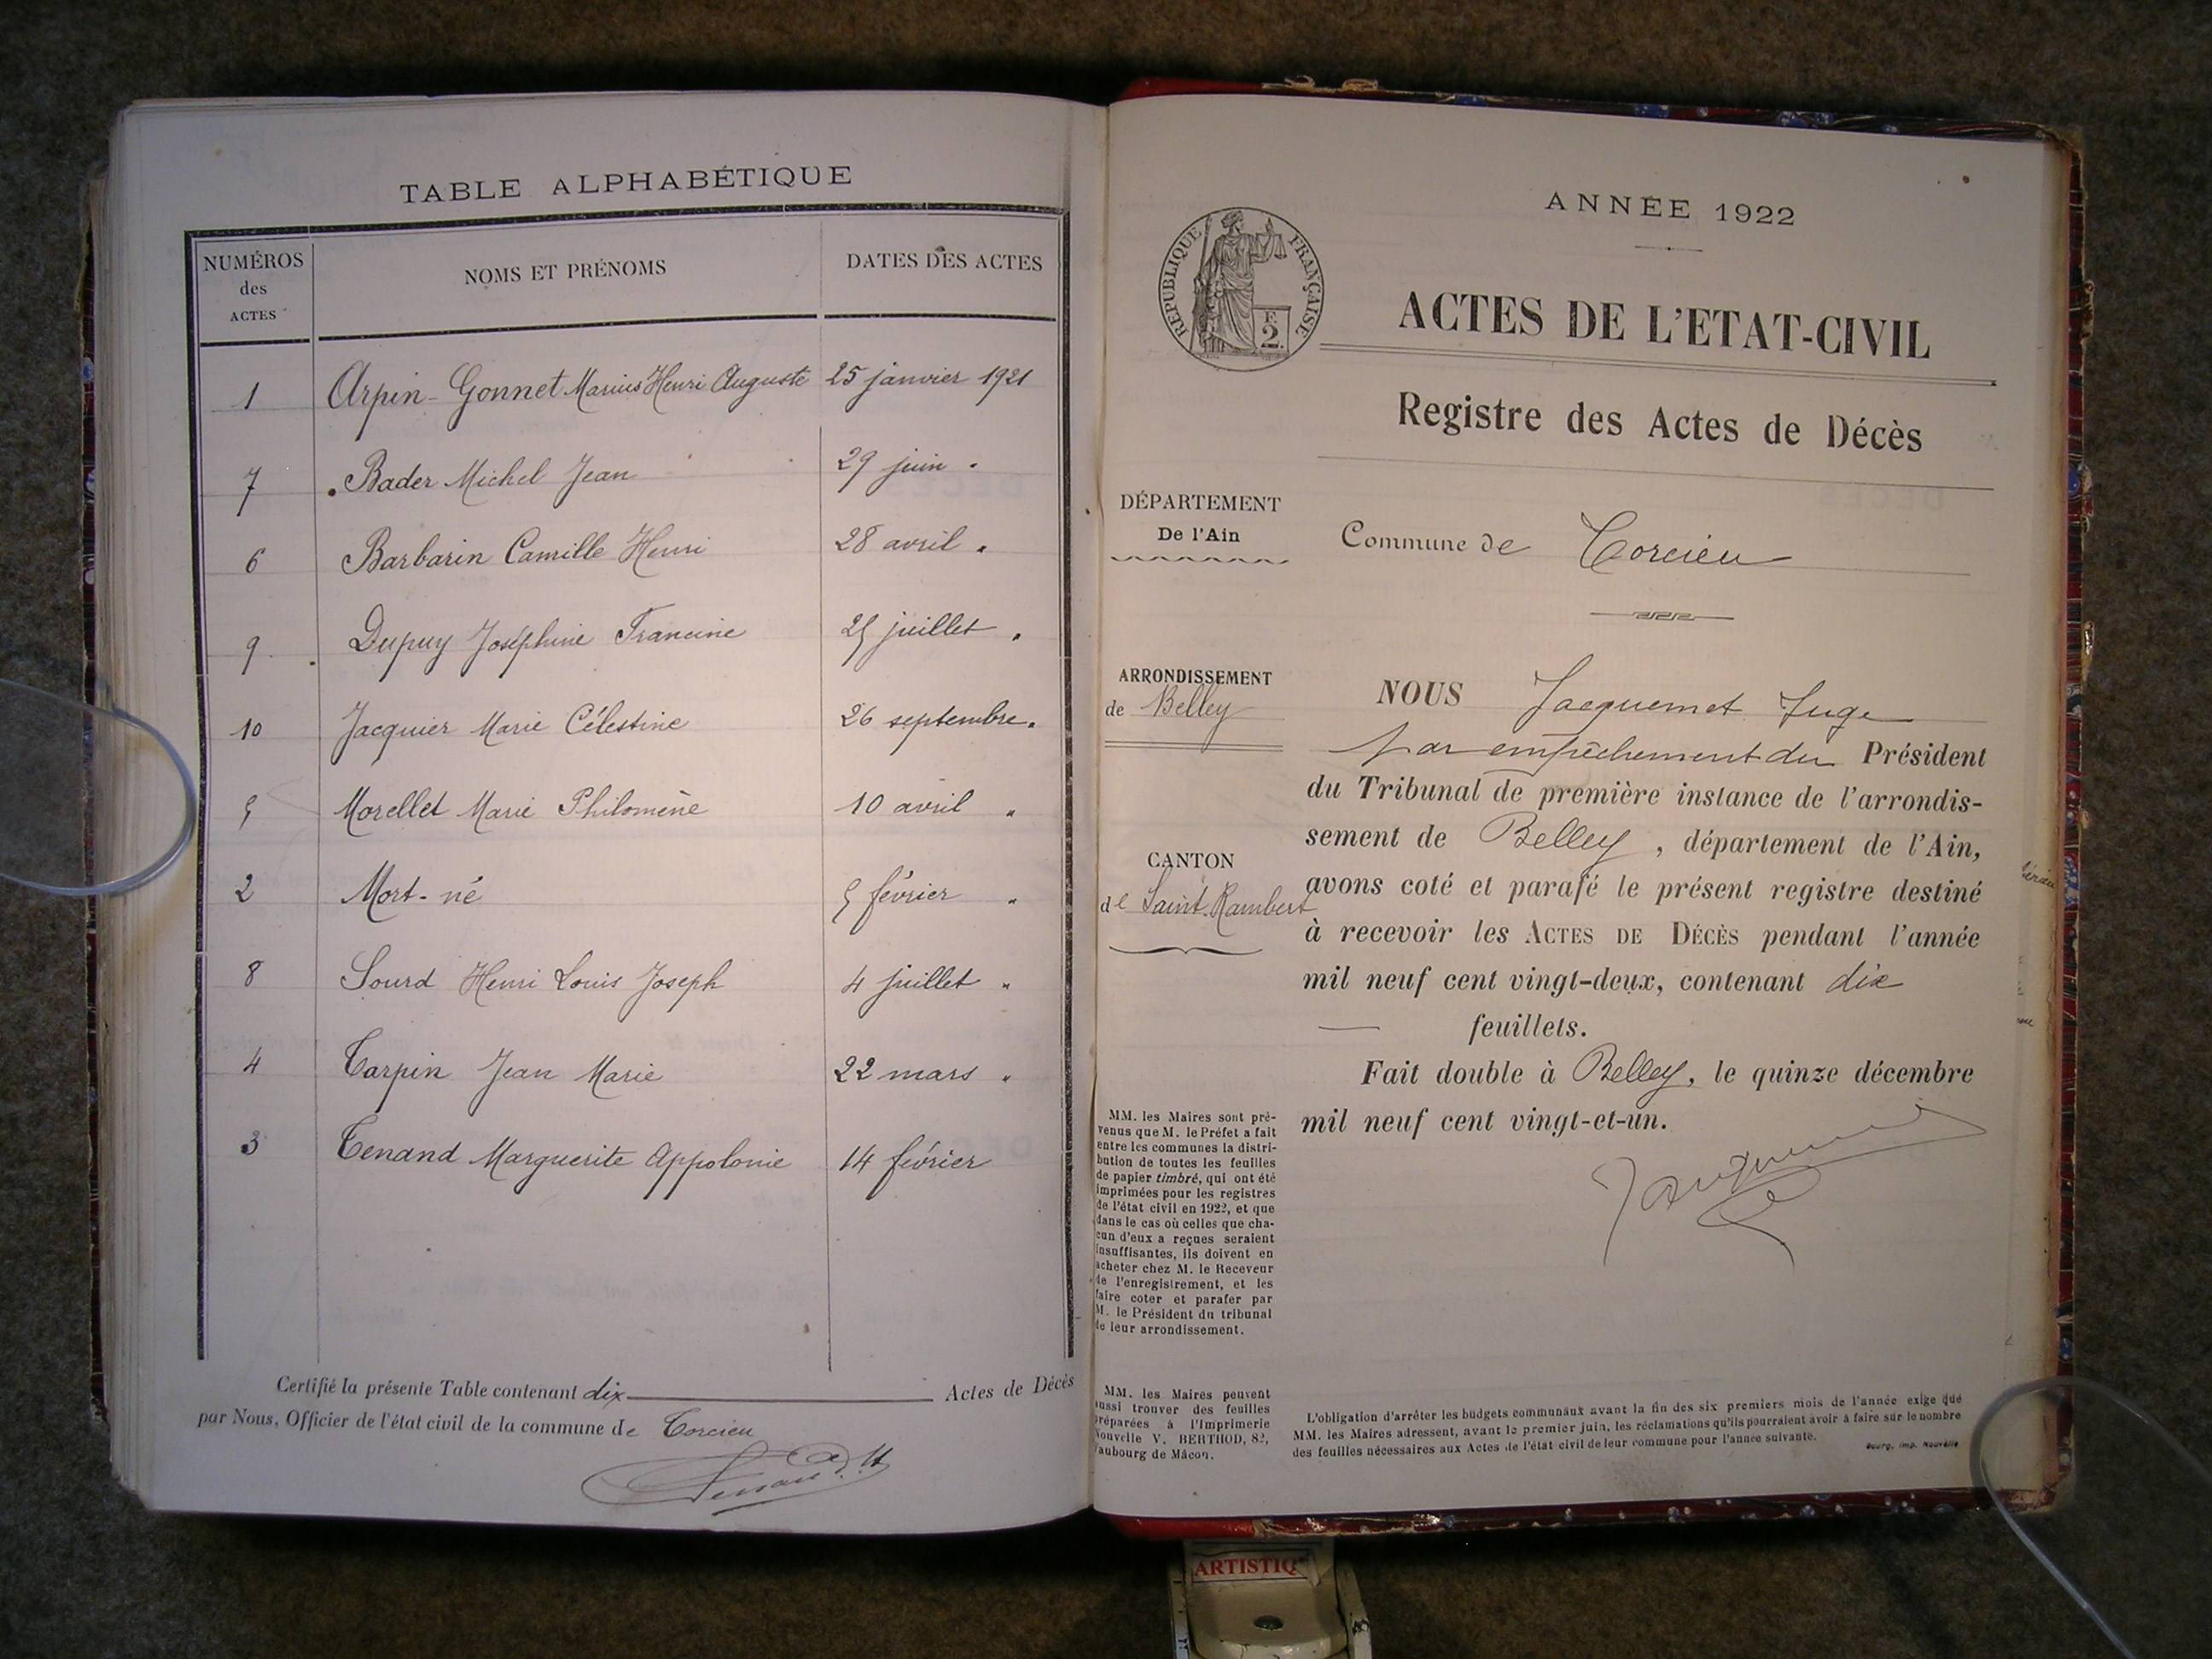 TABLE ALPHABÉTIQUE
NUMÉROS
des
ACTES
NOMS ET PRÉNOMS
DATES DES ACTES
1 Arpin-Gonnet Marius Henri Auguste 25 janvier 1921
7 Bader Michel Jean 29 juin "
6 Barbarin Camille Henri 28 avril "
9 Dupuy Joséphine Francine 25 juillet "
10 Jacquier Marie Célestine 26 septembre "
5 Morellet Marie Philomène 10 avril "
2 Mort-né 5 février "
8 Sourd Henri Louis Joseph 4 juillet "
4 Tarpin Jean Marie 22 mars "
3 Tenand Marguerite Appolonie 14 février
Certifié la présente Table contenant dix Actes de Décès
par Nous, Officier de l'état civil de la commune de Torcieu
ANNÉE 1922
RÉPUBLIQUE FRANÇAISE
2
ACTES DE L'ETAT-CIVIL
Registre des Actes de Décès
DÉPARTEMENT
De l'Ain
Commune de Torcieu
ARRONDISSEMENT
de Belley
CANTON
de Saint-Rambert
NOUS Jacquemet Juge
par empêchement du Président
du Tribunal de première instance de l'arrondis-
sement de Belley, département de l'Ain,
avons coté et parafé le présent registre destiné
à recevoir les ACTES DE DÉCÈS pendant l'année
mil neuf cent vingt-deux, contenant dix
feuillets.
Fait double à Belley, le quinze décembre
mil neuf cent vingt-et-un.
MM. les Maires sont pré-
venus que M. le Préfet a fait
entre les communes la distri-
bution de toutes les feuilles
de papier timbré, qui ont été
imprimées pour les registres
de l'état civil en 1922, et que
dans le cas où celles que cha-
cun d'eux a reçues seraient
insuffisantes, ils doivent en
acheter chez M. le Receveur
de l'enregistrement, et les
faire coter et parafer par
M. le Président du tribunal
de leur arrondissement.
MM. les Maires peuvent
aussi trouver des feuilles
préparées à l'Imprimerie
Nouvelle V. BERTHOD, 82,
faubourg de Mâcon.
L'obligation d'arrêter les budgets communaux avant la fin des six premiers mois de l'année exige que
MM. les Maires adressent, avant le premier juin, les réclamations qu'ils pourraient avoir à faire sur le nombre
des feuilles nécessaires aux Actes de l'état civil de leur commune pour l'année suivante.
Bourg, Imp. Nouvelle
ARTISTIQ